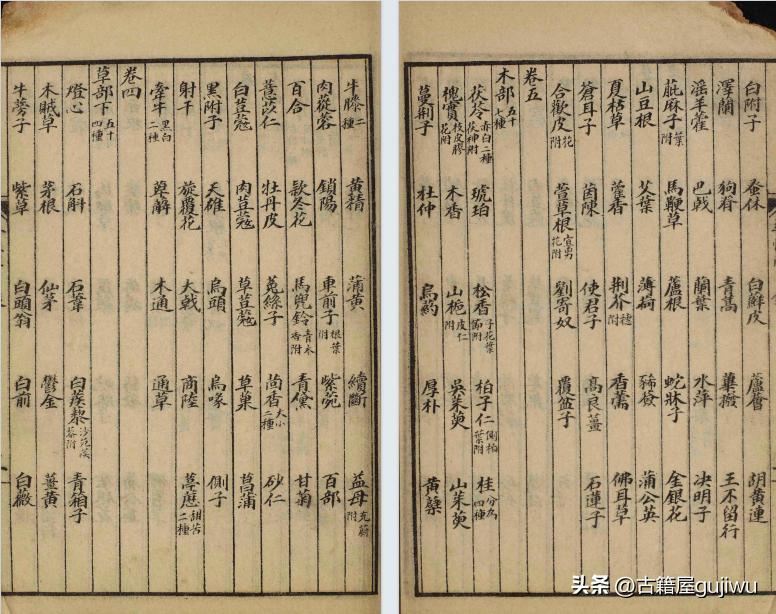 牛膝二種 黃精 蒲黃 續斷 益母充蔚附
肉蓯蓉 鎖陽 車前子根葉附 紫菀 百部
百合 款冬花 馬兜鈴青木香附 青黛 甘菊
薏苡仁 牡丹皮 菟絲子 茴香大小二種 砂仁
白荳蔻 肉荳蔻 草荳蔻 草菓 菖蒲
黑附子 天雄 烏頭 烏喙 側子
射干 旋覆花 大戟 商陸 葶藶甜苦二種
牽牛黑白二種 萆薢 木通 通草
卷四
草部下五十四種
燈心 石斛 石葦 白蒺藜沙苑蒺藜附 青箱子
木賊草 茅根 仙茅 鬱金 薑黃
牛蒡子 紫草 白頭翁 白前 白薇
白附子 蚤休 白鮮皮 蘆薈 胡黃連
澤蘭 狗脊 青蒿 蓽撥 王不留行
淫羊藿 巴戟 蘭葉 水萍 決明子
萞麻子葉附 馬鞭草 蘆根 蛇牀子 金銀花
山豆根 艾葉 薄荷 豨薟 蒲公英
夏枯草 藿香 荆芥穗附 香薷 佛耳草
蒼耳子 茵陳 使君子 高良薑 石蓮子
合歡皮花附 萱草根宜男花附 劉寄奴 覆盆子
卷五
木部五十七種
茯苓赤白二種茯神附 琥珀 松香子花葉節附 柏子仁側柏葉附 桂分為四種
槐實枝皮膠花附 木香 山梔皮仁附 吳茱萸 山茱萸
蔓荆子 杜仲 烏葯 厚朴 黃蘗
头条 @古籍屋gujiwu